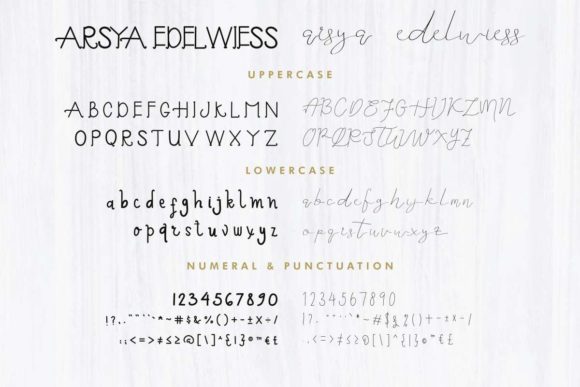 ARSYA EDELWIESS arsya edelwiess
UPPERCASE
ABCDEFGHIJKLMN ABCDEFGHIJKLMN
OPQRSTUVWXYZ OPQRSTUVWXYZ
LOWERCASE
abcdefghijklmn abcdefghijklmn
opqrstuvwxyz opqrstuvwxyz
NUMERAL & PUNCTUATION
1234567890 1234567890